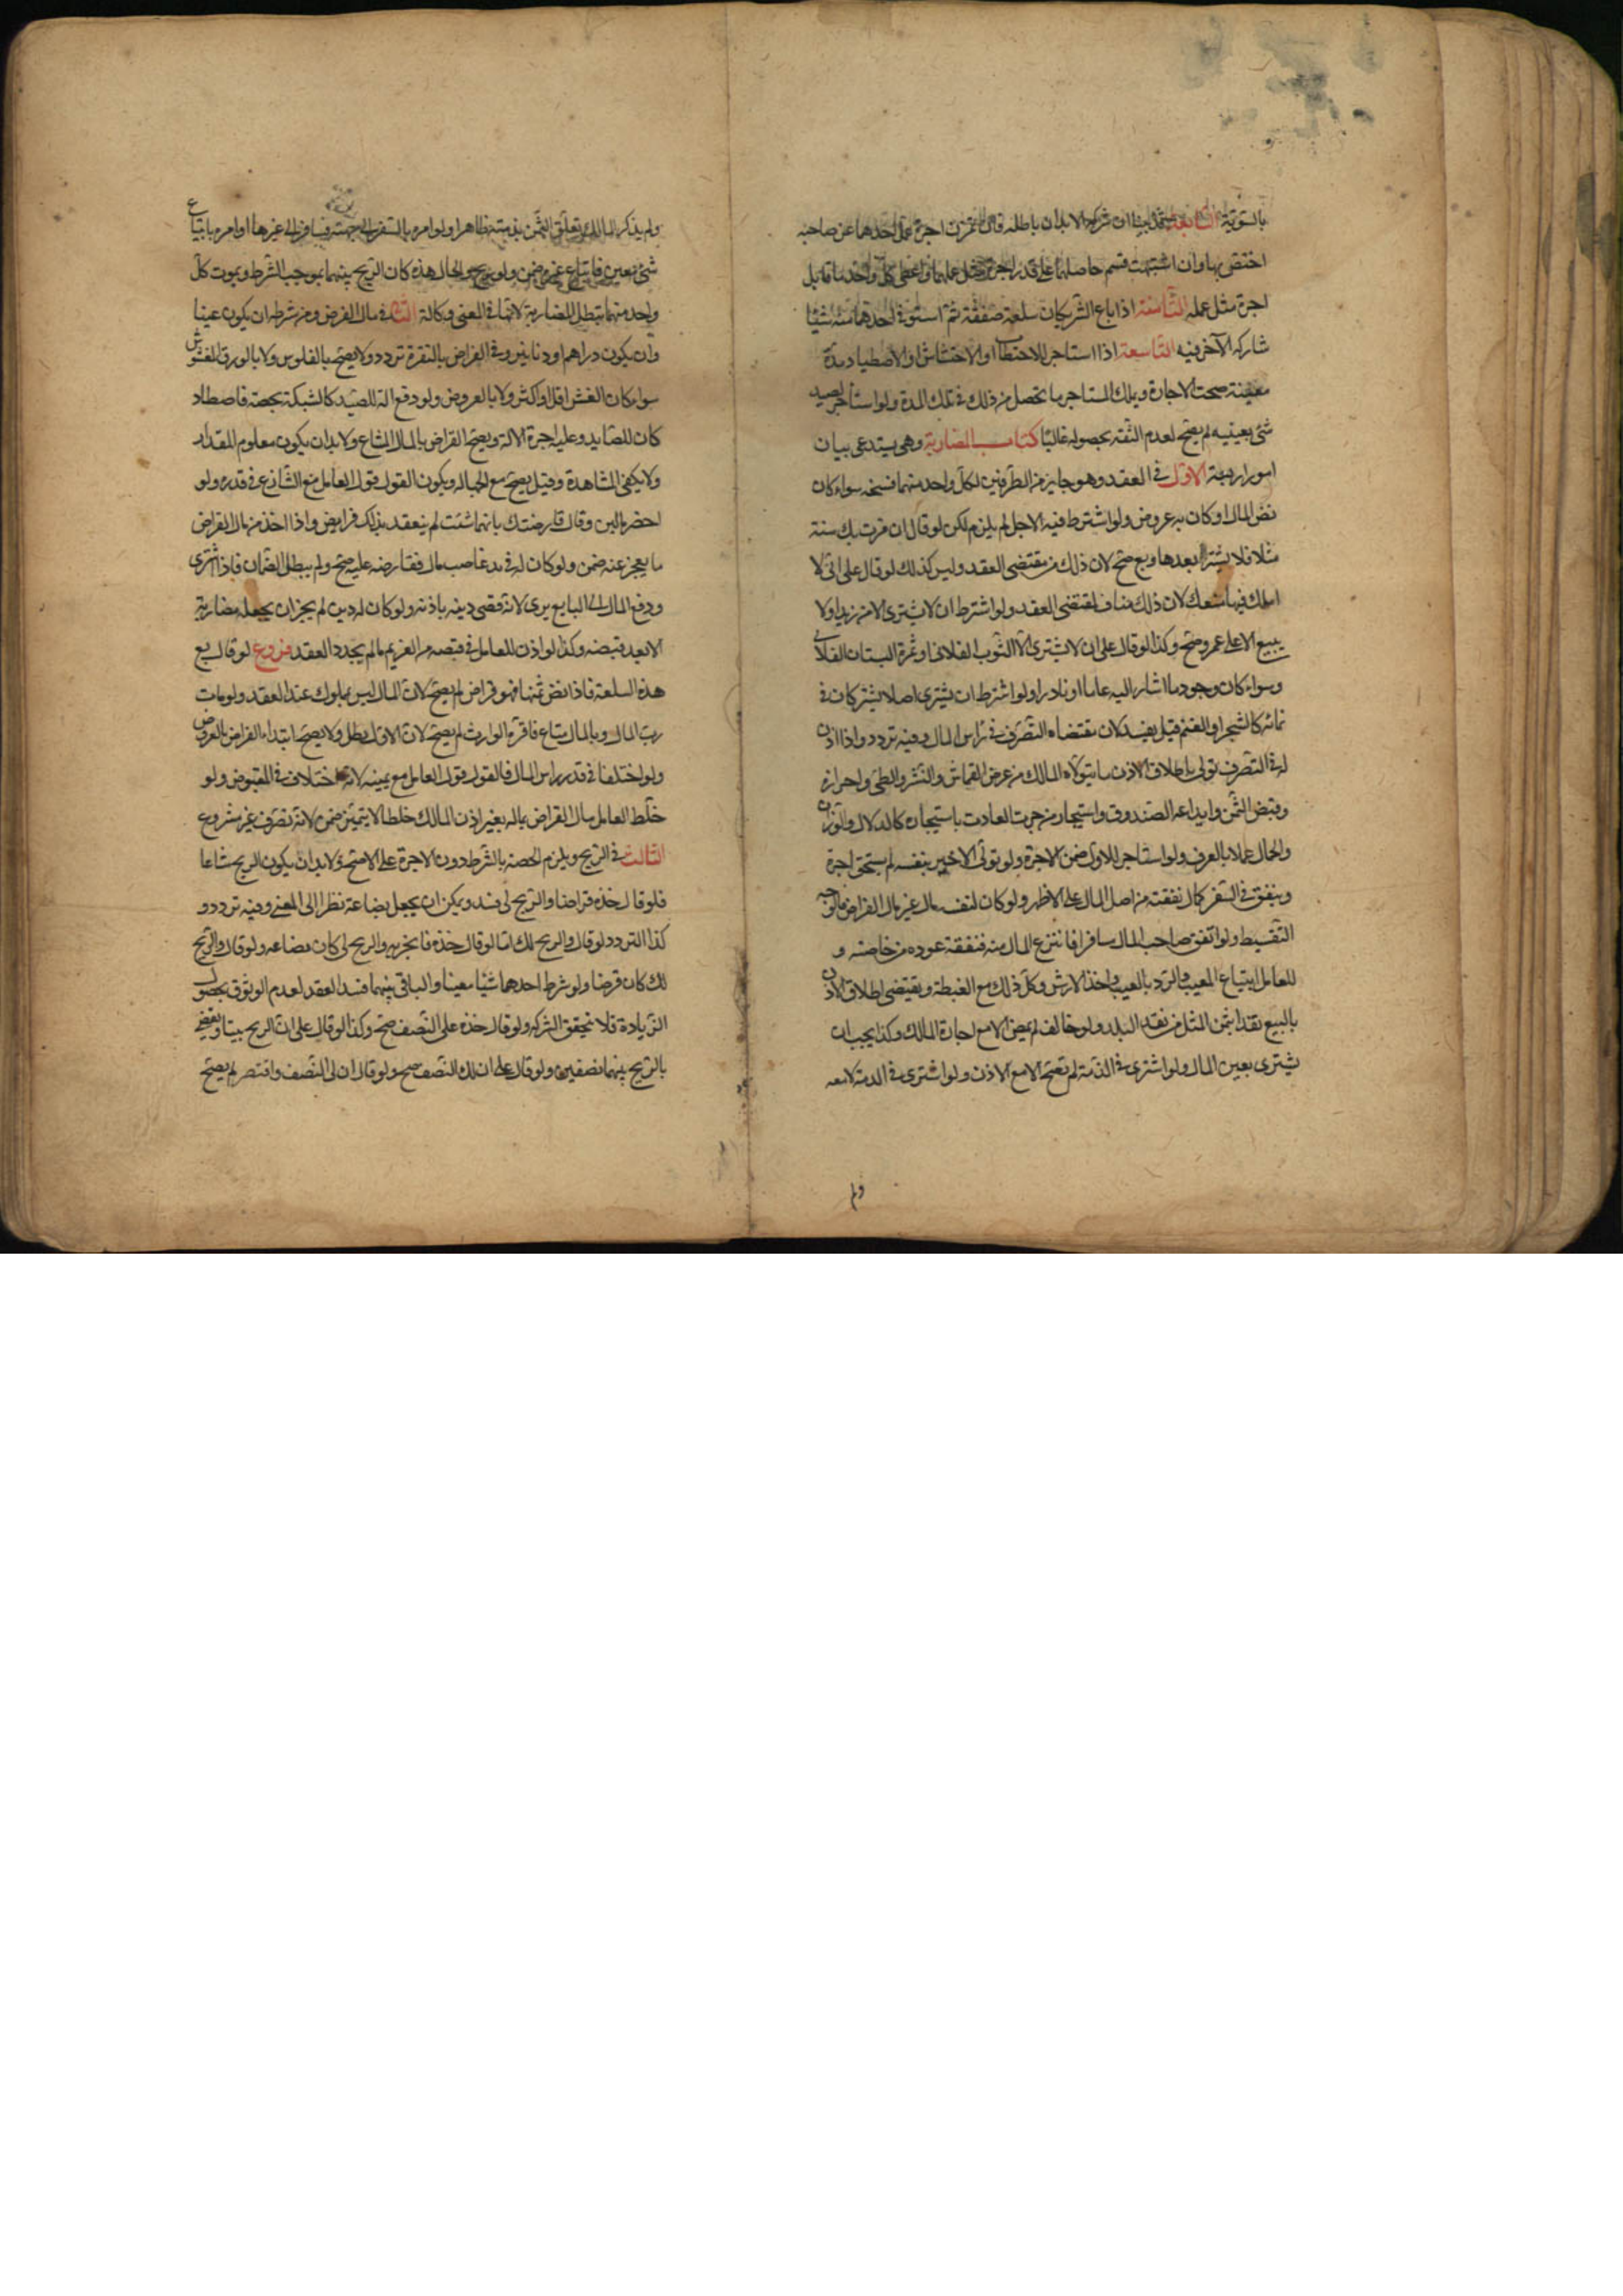 بالسوية السابعة قد بينا ان شركة الابدان باطلة فان تميزت اجرة عمل احدهما عن صاحبه
اختص بها وان اشتبهت قسم حاصلهما على قدر اجرة مثل عملهما واعطى كل واحد ما قابل
اجرة مثل عمله الثامنة اذا باع الشريكان سلعة صفقة ثم استوفى احدهما منه شيئا
شاركه الآخر فيه التاسعة اذا استاجر للاحتطاب او الاحتشاش او الاصطياد مدة
معينة صحت الاجارة ويملك المستاجر ما يحصل من ذلك في تلك المدة ولو استأجر لصيد
شئ بعينه لم يصح لعدم الثقة بحصوله غالبا كتاب المضاربة وهى يستدعى بيان
امور اربعة الاول في العقد وهو جايز من الطرفين لكل واحد منهما فسخه سواء كان
نض المال او كان به عروض ولو اشترط فيه الاجل لم يلزم لكن لو قال ان مرت بك سنة
مثلا فلا تشتر بعدها وبع صح لان ذلك من مقتضى العقد وليس كذلك لو قال على انى لا
املك فيها منعك لان ذلك مناف لمقتضى العقد ولو اشترط ان لا يشترى الا من زيد او لا
يبيع الا على عمرو صح وكذا لو قال على ان لا يشترى الا الثوب الفلانى او ثمرة البستان الفلانى
وسواء كان وجود ما اشار اليه عاما او نادرا ولو اشترط ان يشترى اصلا يشتركان في
نمائه كالشجر او الغنم قيل يفسد لان مقتضاه التصرف في رأس المال وفيه تردد واذا اذن
له في التصرف تولى باطلاق الاذن ما يتولاه المالك من عرض القماش والنشر والطى واحرازه
وقبض الثمن وايداعه الصندوق واستيجار من جرت العادت باستيجاره كالدلال والوزان
والحمال عملا بالعرف ولو استاجر للاول ضمن الاجرة ولو تولى الاخير بنفسه لم يستحق اجرة
وينفق في السفر كمال نفقته من اصل المال على الاظهر ولو كان لنفسه مال غير مال القراض فالوجه
التقسيط ولو اتفق صاحب المال سافر فانتزع المال منه فنفقة عوده من خاصته و
للعامل ابتياع المعيب والرد بالعيب واخذ الارش وكل ذلك مع الغبطة ويقتضى اطلاق الاذن
بالبيع نقدا بثمن المثل من نقد البلد ولو خالف لم يمض الا مع اجازة المالك وكذا يجب ان
يشترى بعين المال ولو اشترى في الذمة لم يصح الا مع الاذن ولو اشترى في الذمة لا معه
ولم
ولم يذكر المالك تعلق الثمن بذمته ظاهرا ولو امره بالسفر الى جهة فسافر الى غيرها او امره بابتياع
شئ معين فابتاع غيره ضمن ولو ربح والحال هذه كان الربح بينهما بموجب الشرط وبموت كل
واحد منهما تبطل المضاربة لانها في المعنى وكالة الثانى في مال القرض ومن شرطه ان يكون عينا
وان يكون دراهم او دنانير وفي القراض بالنقرة تردد ولا يصح بالفلوس ولا بالورق المغشوش
سواء كان الغش اقل او اكثر ولا بالعروض ولو دفع الة للصيد كالشبكة بحصة فاصطاد
كان للصايد وعليه اجرة الالة ويصح القراض بالمال المشاع ولا بد ان يكون معلوم المقدار
ولا يكفى المشاهدة وقيل يصح مع الجهالة ويكون القول قول العامل مع التنازع في قدره ولو
احضر مالين وقال قارضتك بايهما شئت لم ينعقد بذلك قراض واذا اخذ من مال القراض
ما يعجز عنه ضمن ولو كان له في يد غاصب مال فقارضه عليه صح ولم يبطل الضمان فاذا اشترى
ودفع المال الى البايع برى لانه قضى دينه باذنه ولو كان له دين لم يجز ان يجعله مضاربة
الا بعد قبضه وكذا لو اذن للعامل في قبضه من الغريم ما لم يجدد العقد فروع لو قال بع
هذه السلعة فاذا نض ثمنها فهو قراض لم يصح لان المال ليس بمملوك عند العقد ولو مات
رب المال وبالمال متاع فاقره الوارث لم يصح لان الاول بطل ولا يصح ابتداء القراض بالعروض
ولو اختلفا في قدر راس المال فالقول قول العامل مع يمينه لانه اختلاف في المقبوض ولو
خلط العامل مال القراض بماله بغير اذن المالك خلطا لا يتميز ضمن لانه تصرف غير مشروع
الثالث في الربح ويلزم الحصة بالشرط دون الاجرة على الاصح ولا بد ان يكون الربح مشاعا
فلو قال خذه قراضا والربح لى فسد ويمكن ان يجعل بضاعة نظرا الى المعنى وفيه تردد و
كذا التردد لو قال والربح لك اما لو قال خذه فاتجر به والربح لى كان بضاعه ولو قال والربح
لك كان قرضا ولو شرط احدهما شيئا معينا والباقى بينهما فسد العقد لعدم الوثوق بحصول
الزيادة فلا تتحقق الشركة ولو قال خذه على النصف صح وكذا لو قال على ان الربح بيننا ويقضى
بالربح بينهما نصفين ولو قال على ان لك النصف صح ولو قال ان لى النصف واقتصر لم يصح